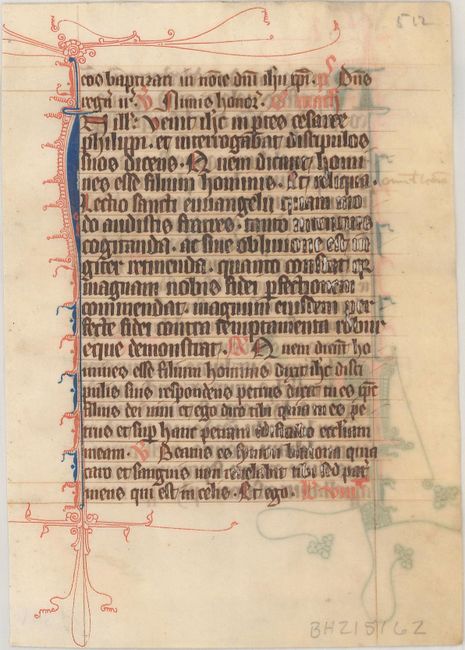 512
eos baptizari in noīe dn̄i ihū xp̄i. ps Dn̄s
regit ir. V Nimis honor.
In ill. Venit ihc̄ in ptes cesaree
philippi. et interrogabat discipulos
suos dicens. Quem dicunt homi
nes esse filium hominis. Et reliqua.
Lectio sancti euuangelii quam mo
do audistis fratres. tanto
cogitanda. ac sine obliuione est iu
giter retinenda. quanto constat qr
magnam nobis fidei pfectionem
commendat. magnum eiusdem per
fecte fidei contra temptamenta robur
eque demonstrat. R Quem dicūt ho
mines esse filium hominis dixit ihc̄ disci
pulis suis respondens petrus dixit tu es xp̄c
filius dei uiui et ego dico tibi quia tu es pe
trus et sup hanc petram edificabo ecc̄liam
meam. V Beatus es symon bariona quia
caro et sanguis non reuelabit tibi sed pat
meus qui est in celis. Et ego.
BH215162